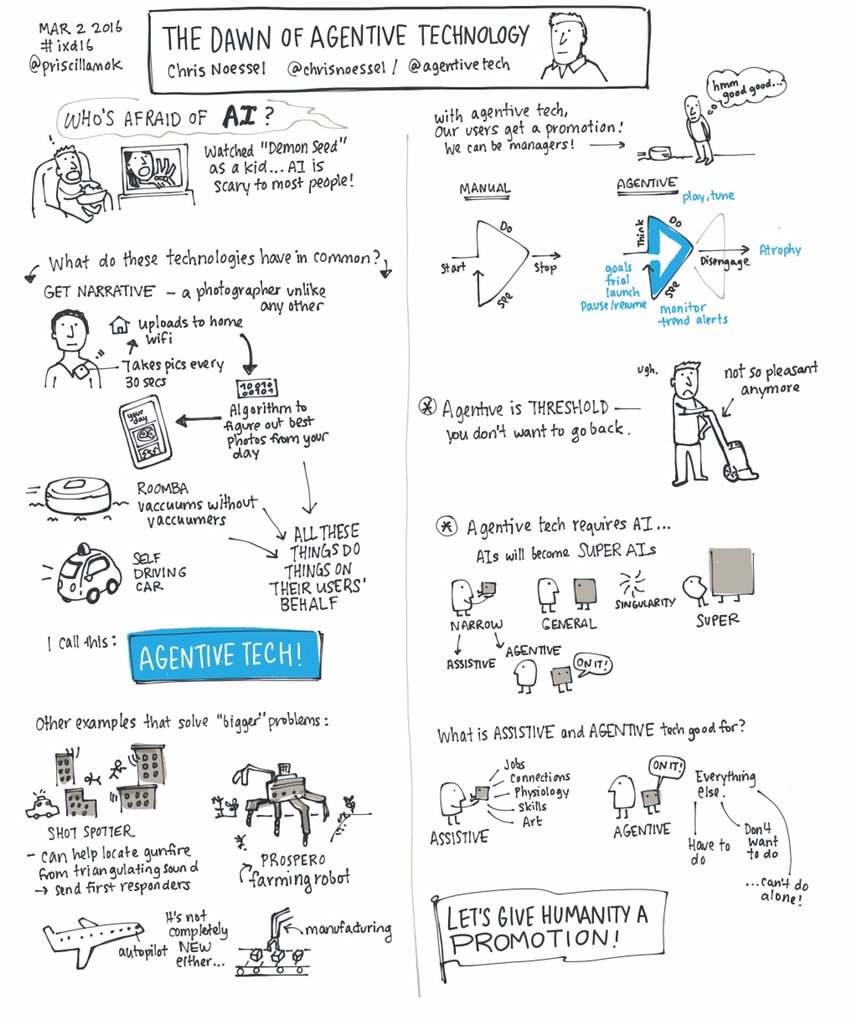 MAR 2 2016
#ixd16
@priscillamok
THE DAWN OF AGENTIVE TECHNOLOGY
Chris Noessel @chrisnoessel / @agentivetech
WHO'S AFRAID OF AI?
Watched "Demon Seed"
as a kid... AI is
scary to most people!
What do these technologies have in common?
GET NARRATIVE – a photographer unlike
any other
uploads to home
wifi
Takes pics every
30 secs
10910
00101
Algorithm to
figure out best
photos from your
day
your
day
ROOMBA
vaccuums without
vaccuumers
SELF
DRIVING
CAR
ALL THESE
THINGS DO
THINGS ON
THEIR USERS'
BEHALF
I call this:
AGENTIVE TECH!
Other examples that solve "bigger" problems:
SHOT SPOTTER
- can help locate gunfire
from triangulating sound
→ send first responders
PROSPERO
farming robot
autopilot
It's not
completely
NEW
either...
manufacturing
with agentive tech,
our users get a promotion!
We can be managers!
hmm
good good...
MANUAL
Start
Do
See
Stop
AGENTIVE
play, tune
Think
Do
See
Disengage
Atrophy
goals
trial
launch
Pause/resume
monitor
trend alerts
* Agentive is THRESHOLD —
you don't want to go back.
ugh.
not so pleasant
anymore
* Agentive tech requires AI...
AIs will become SUPER AIs
NARROW
GENERAL
SINGULARITY
SUPER
ASSISTIVE
AGENTIVE
ON IT!
What is ASSISTIVE and AGENTIVE tech good for?
ASSISTIVE
Jobs
Connections
Physiology
Skills
Art
AGENTIVE
ON IT!
Everything
else.
Have to
do
Don't
want
to do
...can't do
alone!
LET'S GIVE HUMANITY A
PROMOTION!